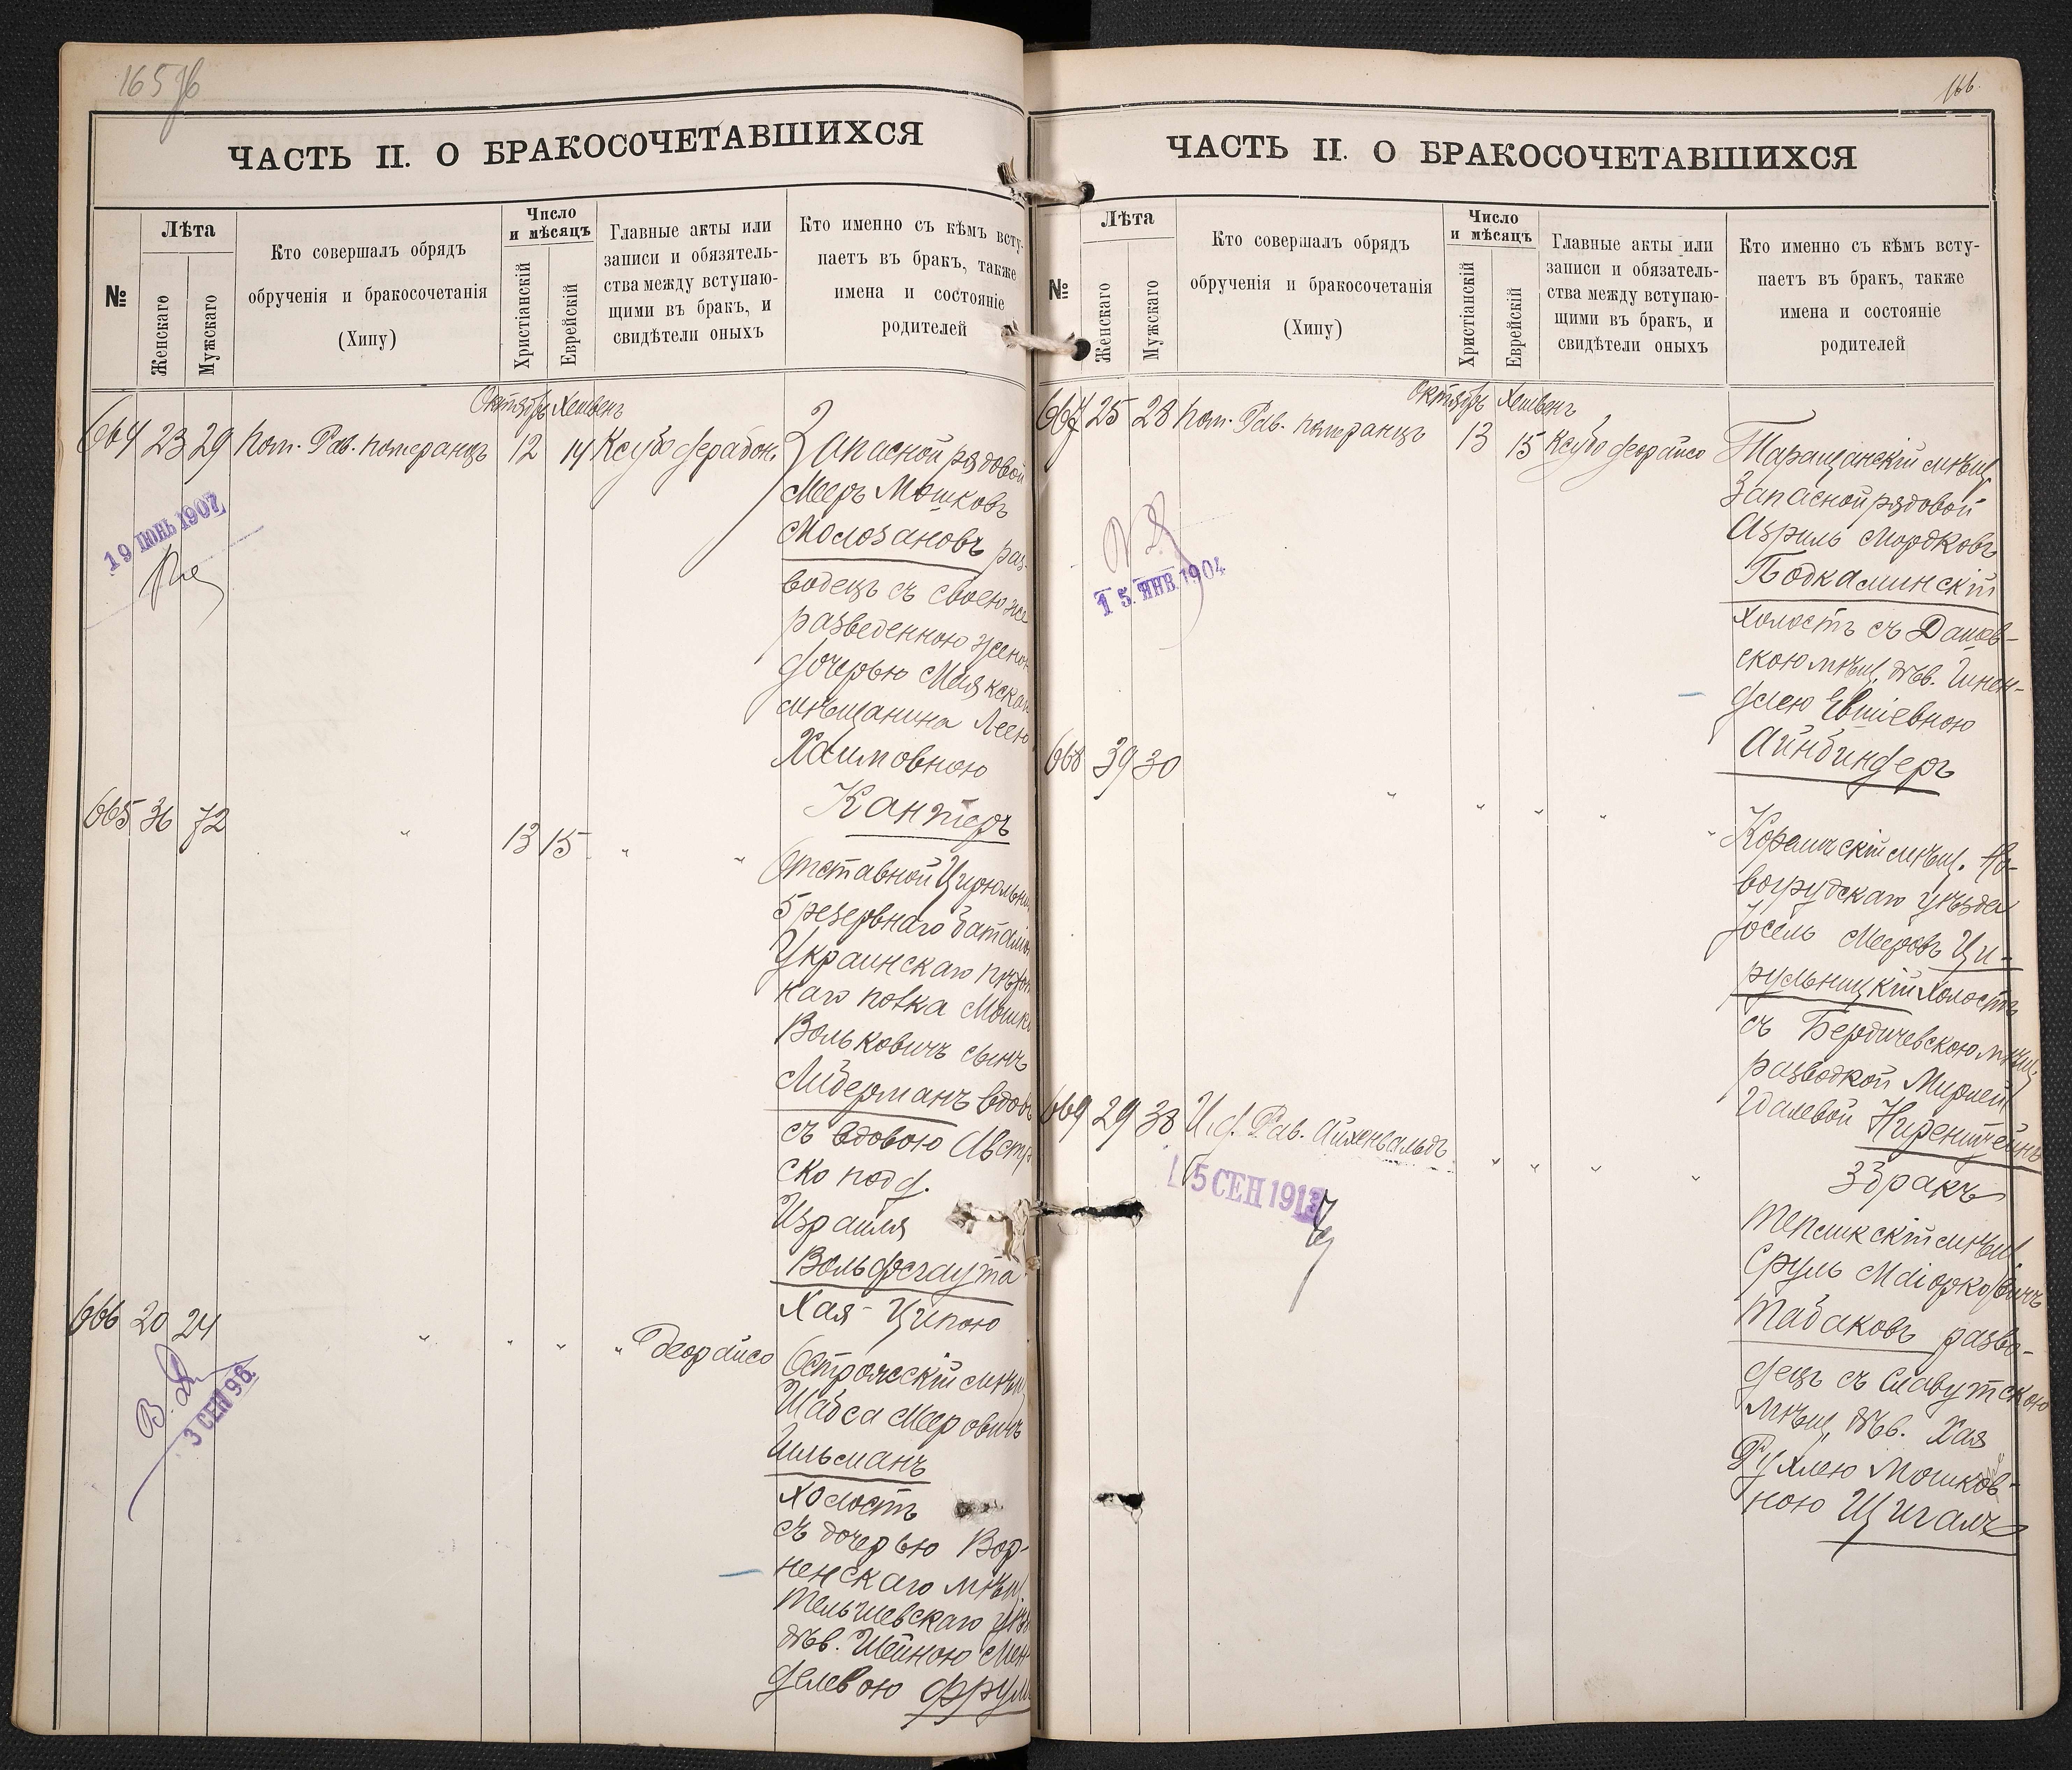 165 об
ЧАСТЬ II. О БРАКОСОЧЕТАВШИХСЯ
№
Лѣта
Женскаго
Мужскаго
Кто совершалъ обрядъ
обрученія и бракосочетанія
(Хипу)
Число
и мѣсяцъ
Христіанскій
Еврейскій
Главные акты или
записи и обязатель-
ства между вступаю-
щими въ бракъ, и
свидѣтели оныхъ
Кто именно съ кѣмъ всту-
паетъ въ бракъ, также
имена и состояніе
родителей
Октябрь Хешвенъ
664 23 29 пом. Рав. Померанцъ 12 14 Ксуба дерабон.
Запасной рядовой
Мееръ Мошковъ
Молозановъ раз-
водецъ съ своею же
разведенною женою
дочерью Маякскаго
мѣщанина Леею
Хаимовною
Канторъ
19 ІЮНЬ 1907
665 36 72 " 13 15 " "
Отставной Цирюльни
5 резервнаго баталіо
Украинскаго пѣхот
наго полка Мошко
Вольковичъ сынъ
Либерманъ вдов
съ вдовою Австр
ско под.
Израиля
Вольфсгаута
Хая-Ципою
666 20 24 " " " " Деорайсо
Острожскій мѣщ
Шабса Мееровичъ
Гильманъ
холостъ
съ дочерью Вор-
ненскаго мѣщ.
Тельшевскаго уѣз
дѣв. Шейною Мен-
делевою Фрум
В. Я.
3 СЕН 96
166.
ЧАСТЬ II. О БРАКОСОЧЕТАВШИХСЯ
№
Лѣта
Женскаго
Мужскаго
Кто совершалъ обрядъ
обрученія и бракосочетанія
(Хипу)
Число
и мѣсяцъ
Христіанскій
Еврейскій
Главные акты или
записи и обязатель-
ства между вступаю-
щими въ бракъ, и
свидѣтели оныхъ
Кто именно съ кѣмъ всту-
паетъ въ бракъ, также
имена и состояніе
родителей
Октябрь Хешвенъ
667 25 28 пом. Рав. Померанцъ 13 15 Ксубо деорайсо
Таращанскій мѣщ
Запасной рядовой
Азриль Мордковъ
Подкаминскій
холостъ съ Дашев-
скою мѣщ. дѣв. Гинен-
длею Евшіевною
Айнбиндеръ
15 ЯНВ 1904
668 39 30 " " " " "
Корелическій мѣщ. Но-
вогрудскаго уѣзда
Іосель Мееровъ Ци-
рульницкій холостъ
съ Бердичевскою мѣщ.
разводкой Мирлей
Идалевой Ниренштейнъ
3 бракъ
669 29 38 И. д. Рав. Айхенвальдъ " " " "
Тепликскій мѣщ
Сруль Маіорковичъ
Табаковъ разво-
децъ съ Славутскою
мѣщ. дѣв. Хая
Рухлею Мошков-
ною Щигаль
5 СЕН 1913